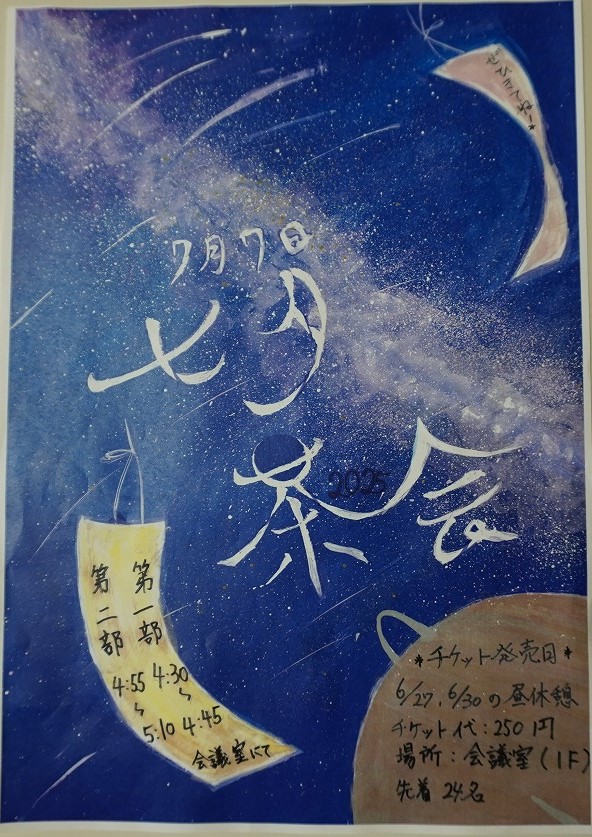 ぜひきてね！*
7月7日
七夕
茶会
2025
第一部
4:30
〜
4:45
第二部
4:55
〜
5:10
会議室にて
*チケット発売日*
6/27,6/30の昼休憩
チケット代:250円
場所:会議室(1F)
先着 24名